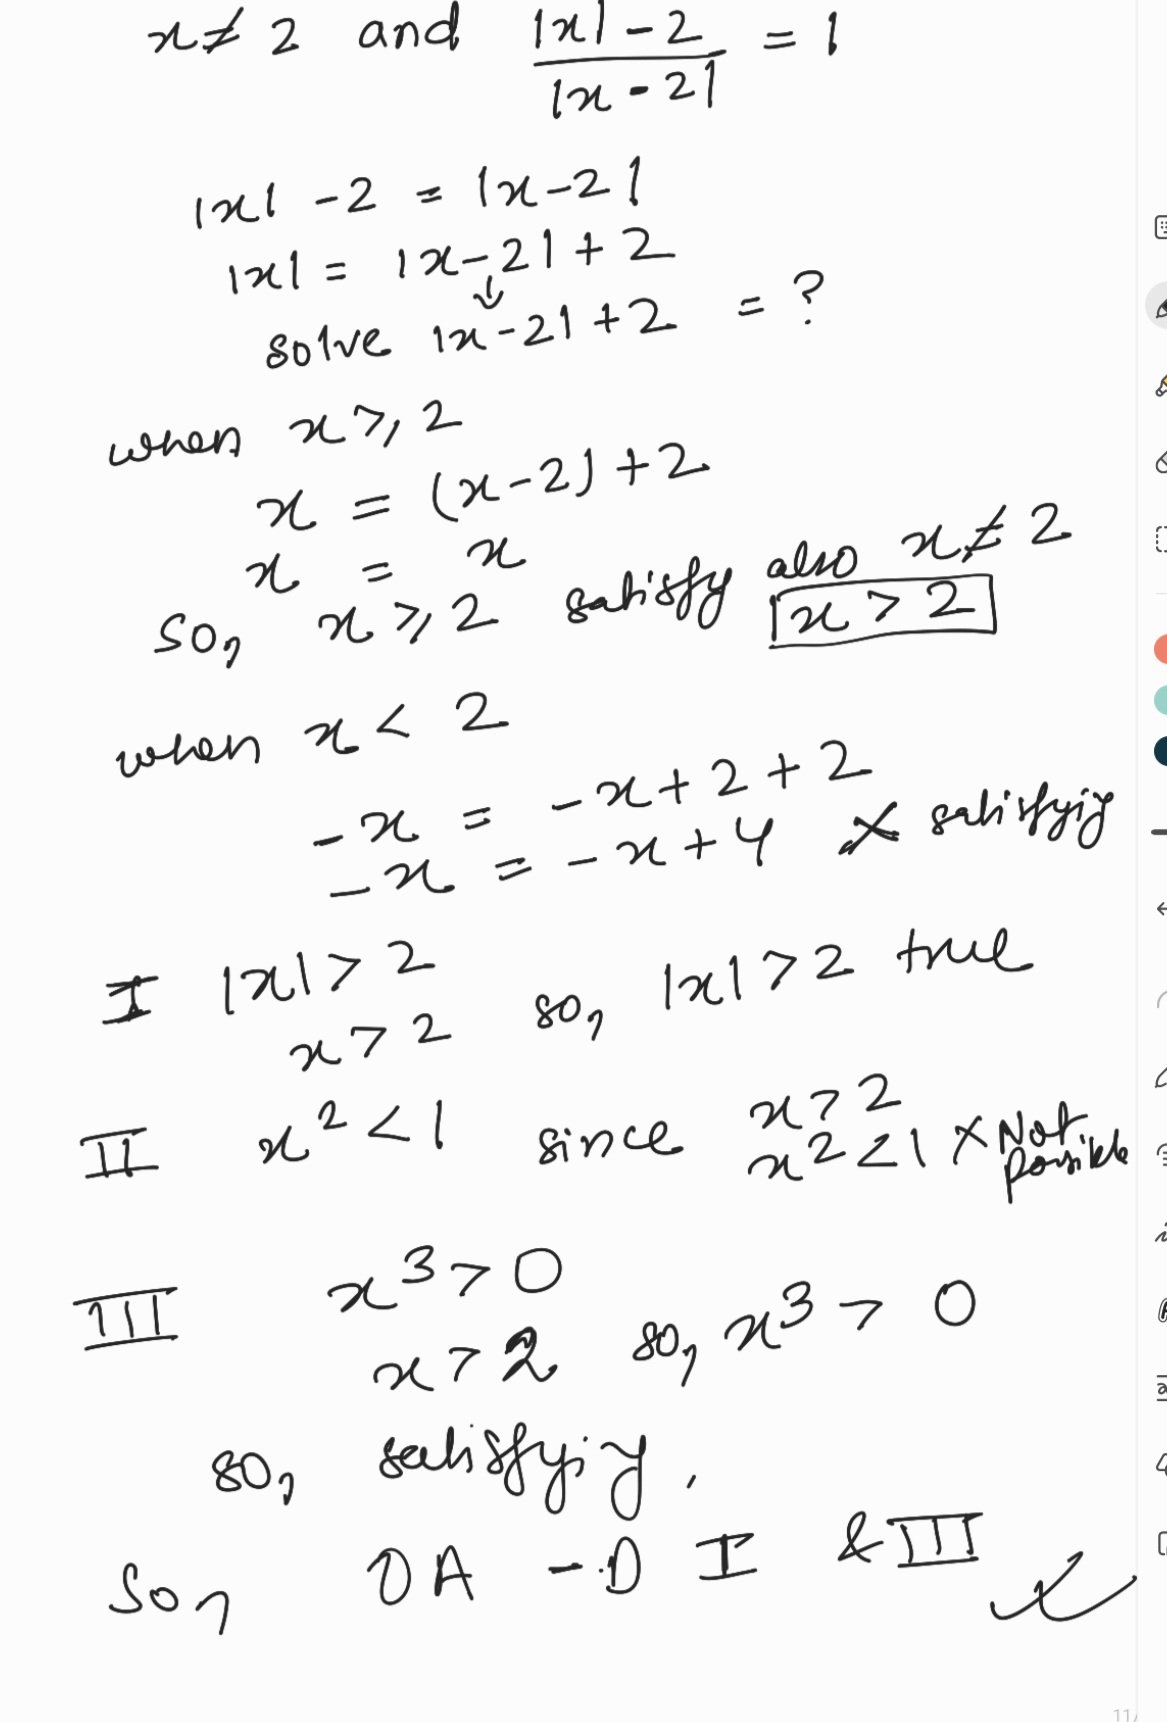 x ≠ 2 and |x| - 2 / |x - 2| = 1
|x| - 2 = |x-2|
|x| = |x-2| + 2
↓
solve |x-2| + 2 = ?
when x ⩾ 2
x = (x-2) + 2
x = x
so, x ⩾ 2 satisfy also x ≠ 2
x > 2
when x < 2
-x = -x + 2 + 2
-x = -x + 4 ✗ satisfyig
I |x| > 2 so, |x| > 2 true
x > 2
II x² < 1 since x > 2
x² < 1 ✗ Not possible
III x³ > 0
x > 2 so, x³ > 0
so, satisfyig.
So, OA - D I & III
11/